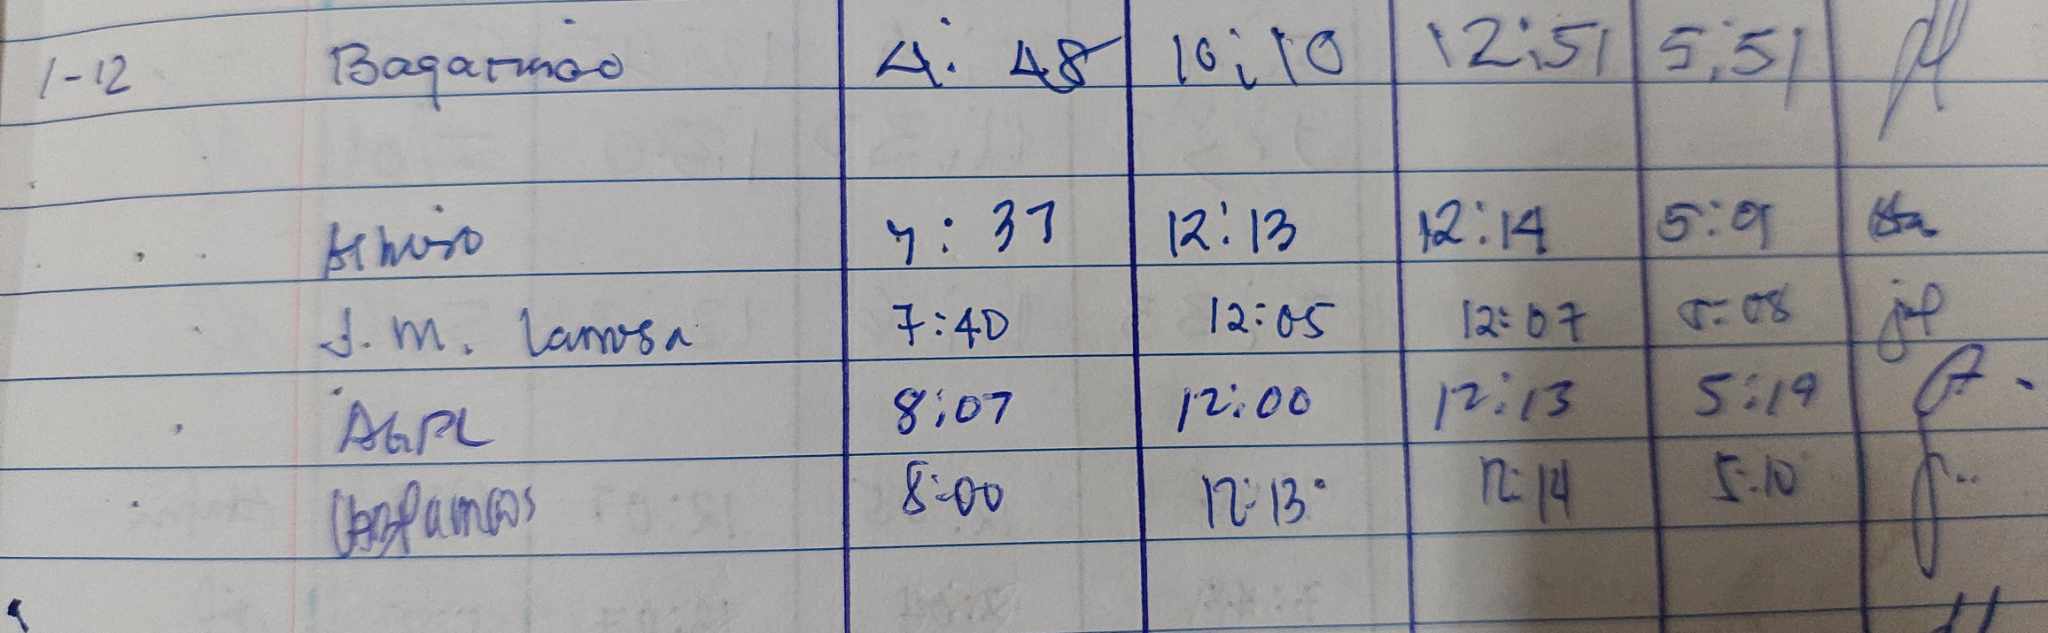 1-12 Bagarinao 4:48 10:10 12:51 5:51
7:37 12:13 12:14 5:9
J.M. Lamosa 7:40 12:05 12:07 5:08
AGPL 8:07 12:00 12:13 5:19
8:00 12:13 12:14 5:10